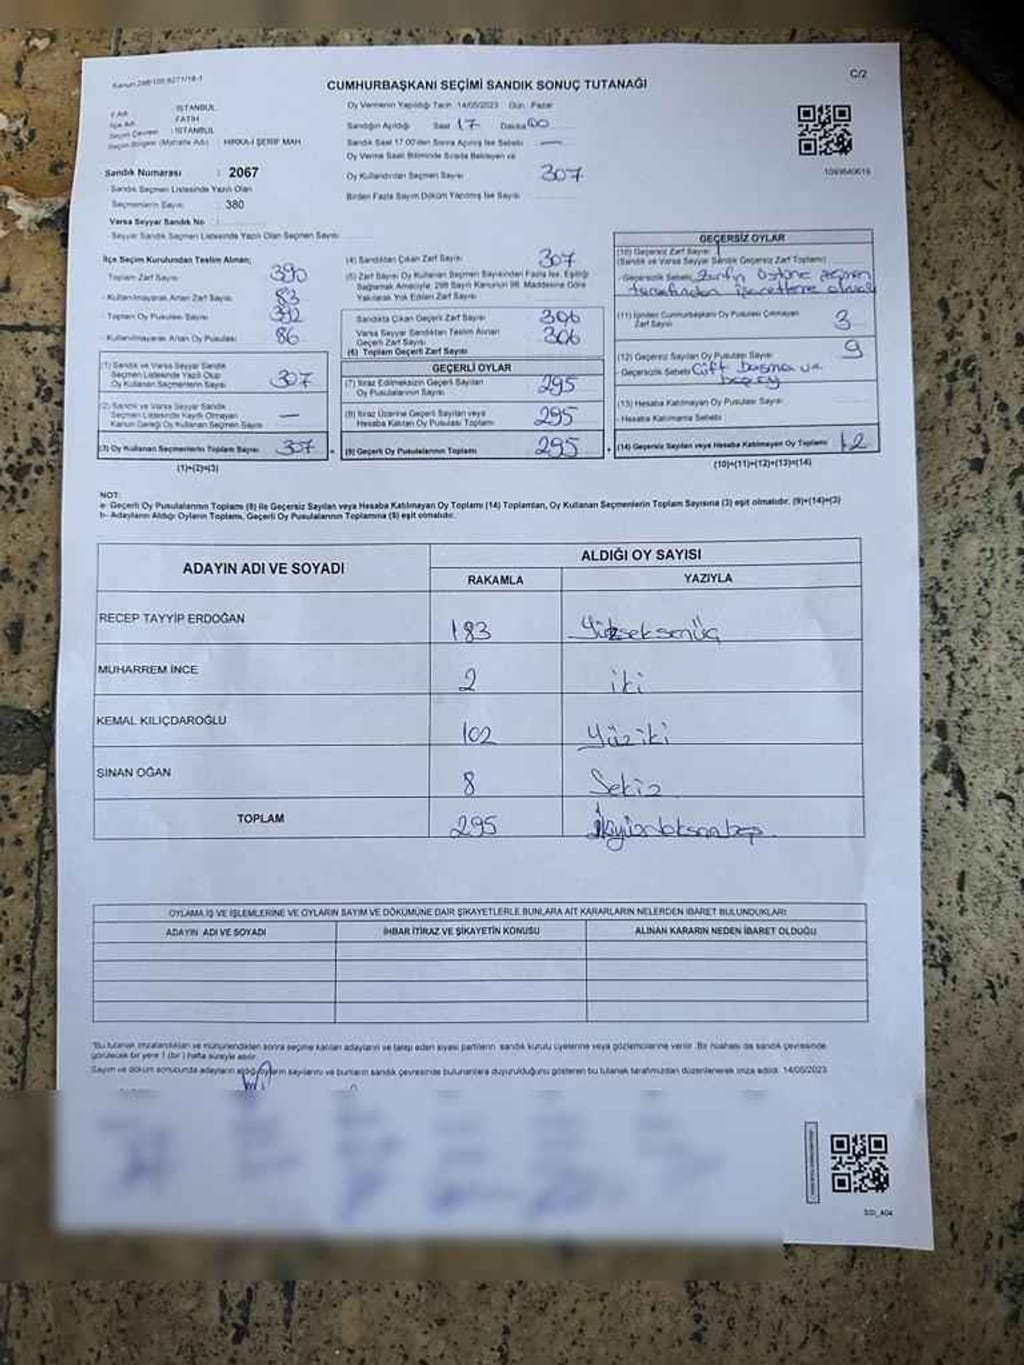 Kanun 298/105 6271/18-1
C/2
CUMHURBAŞKANI SEÇİMİ SANDIK SONUÇ TUTANAĞI
İl Adı : İSTANBUL
İlçe Adı : FATİH
Seçim Çevresi : İSTANBUL
Seçim Bölgesi (Mahalle Adı) : HIRKA-İ ŞERİF MAH
Sandık Numarası : 2067
Sandık Seçmen Listesinde Yazılı Olan
Seçmenlerin Sayısı : 380
Varsa Seyyar Sandık No :
Seyyar Sandık Seçmen Listesinde Yazılı Olan Seçmen Sayısı
Oy Vermenin Yapıldığı Tarih 14/05/2023 Gün : Pazar
Sandığın Açıldığı Saat 17 Dakika 00
Sandık Saat 17.00'den Sonra Açılmış İse Sebebi —
Oy Verme Saati Bitiminde Sırada Bekleyen ve
Oy Kullandırılan Seçmen Sayısı 307
Birden Fazla Sayım Döküm Yapılmış İse Sayısı
1093640619
İlçe Seçim Kurulundan Teslim Alınan;
Toplam Zarf Sayısı 390
Kullanılmayarak Artan Zarf Sayısı 83
Toplam Oy Pusulası Sayısı 392
Kullanılmayarak Artan Oy Pusulası 86
(1) Sandık ve Varsa Seyyar Sandık
Seçmen Listesinde Yazılı Olup
Oy Kullanan Seçmenlerin Sayısı 307
(2) Sandık ve Varsa Seyyar Sandık
Seçmen Listesinde Kayıtlı Olmayan
Kanun Gereği Oy Kullanan Seçmen Sayısı —
(3) Oy Kullanan Seçmenlerin Toplam Sayısı 307
(1)+(2)=(3)
(4) Sandıktan Çıkan Zarf Sayısı 307
(5) Zarf Sayısı Oy Kullanan Seçmen Sayısından Fazla İse, Eşitliği
Sağlamak Amacıyla, 298 Sayılı Kanunun 98. Maddesine Göre
Yakılarak Yok Edilen Zarf Sayısı
Sandıkta Çıkan Geçerli Zarf Sayısı 306
Varsa Seyyar Sandıktan Teslim Alınan
Geçerli Zarf Sayısı 306
(6) Toplam Geçerli Zarf Sayısı
GEÇERLİ OYLAR
(7) İtiraz Edilmeksizin Geçerli Sayılan
Oy Pusulalarının Sayısı 295
(8) İtiraz Üzerine Geçerli Sayılan veya
Hesaba Katılan Oy Pusulası Toplamı 295
(9) Geçerli Oy Pusulalarının Toplamı 295
GEÇERSİZ OYLAR
(10) Geçersiz Zarf Sayısı
(Sandık ve Varsa Seyyar Sandık Geçersiz Zarf Toplamı)
Geçersizlik Sebebi Zarfın üstüne seçmen
tarafından işaretleme olması
(11) İçinden Cumhurbaşkanı Oy Pusulası Çıkmayan
Zarf Sayısı 3
(12) Geçersiz Sayılan Oy Pusulası Sayısı 9
Geçersizlik Sebebi Çift basma ve
(13) Hesaba Katılmayan Oy Pusulası Sayısı
Hesaba Katılmama Sebebi
(14) Geçersiz Sayılan veya Hesaba Katılmayan Oy Toplamı 12
(10)+(11)+(12)+(13)=(14)
NOT:
a- Geçerli Oy Pusulalarının Toplamı (9) ile Geçersiz Sayılan veya Hesaba Katılmayan Oy Toplamı (14) Toplamları, Oy Kullanan Seçmenlerin Toplam Sayısına (3) eşit olmalıdır. (9)+(14)=(3)
b- Adayların Aldığı Oyların Toplamı, Geçerli Oy Pusulalarının Toplamına (9) eşit olmalıdır.
ADAYIN ADI VE SOYADI ALDIĞI OY SAYISI
RAKAMLA YAZIYLA
RECEP TAYYİP ERDOĞAN 183 Yüzseksenüç
MUHARREM İNCE 2 iki
KEMAL KILIÇDAROĞLU 102 Yüziki
SİNAN OĞAN 8 Sekiz
TOPLAM 295 İkiyüzdoksanbeş
OYLAMA İŞ VE İŞLEMLERİNE VE OYLARIN SAYIM VE DÖKÜMÜNE DAİR ŞİKAYETLERLE BUNLARA AİT KARARLARIN NELERDEN İBARET BULUNDUKLARI
ADAYIN ADI VE SOYADI İHBAR İTİRAZ VE ŞİKAYETİN KONUSU ALINAN KARARIN NEDEN İBARET OLDUĞU
"Bu tutanak imzalandıktan ve mühürlendikten sonra seçime katılan adayların ve talep eden siyasi partilerin sandık kurulu üyelerine veya gözlemcilerine verilir. Bir nüshası da sandık çevresinde
görülecek bir yere 1 (bir) hafta süreyle asılır.
Sayım ve döküm sonucunda adayların aldığı oyların sayılarını ve bunların sandık çevresinde bulunanlara duyurulduğunu gösteren bu tutanak tarafımızdan düzenlenerek imza edildi. 14/05/2023
SSI_A04